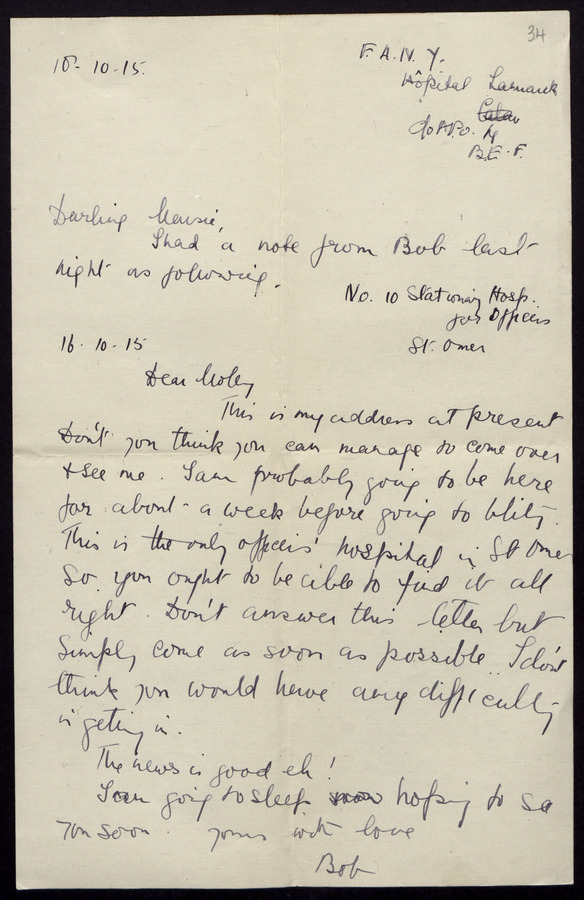 34
18-10-15.
F.A.N.Y.
Hôpital Lamarck
Calais
c/o A.P.O. 4
B.E.F.
Darling
I had a note from Bob last
night as following.
No. 10 Stationary Hosp.
for Officers
16-10-15
St. Omer
Dear Moley
This is my address at present
Don't you think you can manage to come over
& see me. I am probably going to be here
for about a week before going to blity.
This is the only officers' hospital in St Omer
So you ought to be able to find it all
right. Don't answer this letter but
Simply come as soon as possible. I don't
think you would have any difficulty
in getting in.
The news is good eh!
I am going to sleep now hoping to see
you soon. yours with love
Bob